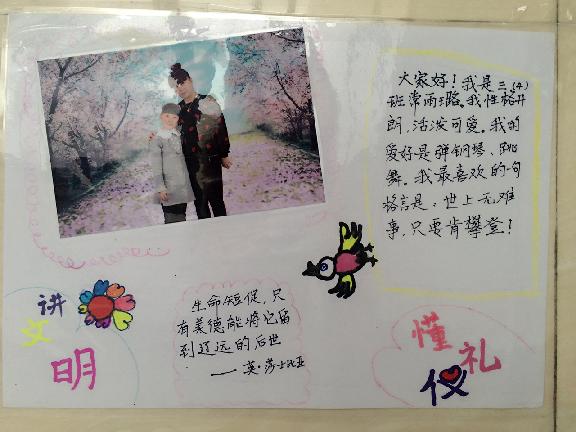 大家好！我是三(4)
班常雨璐。我性格开
朗，活泼可爱。我的
爱好是弹钢琴、跳
舞。我最喜欢的一句
格言是：世上无难
事，只要肯攀登！
生命短促，只
有美德能将它留
到辽远的后世
——英·莎士比亚
讲
文
明
懂
礼
仪